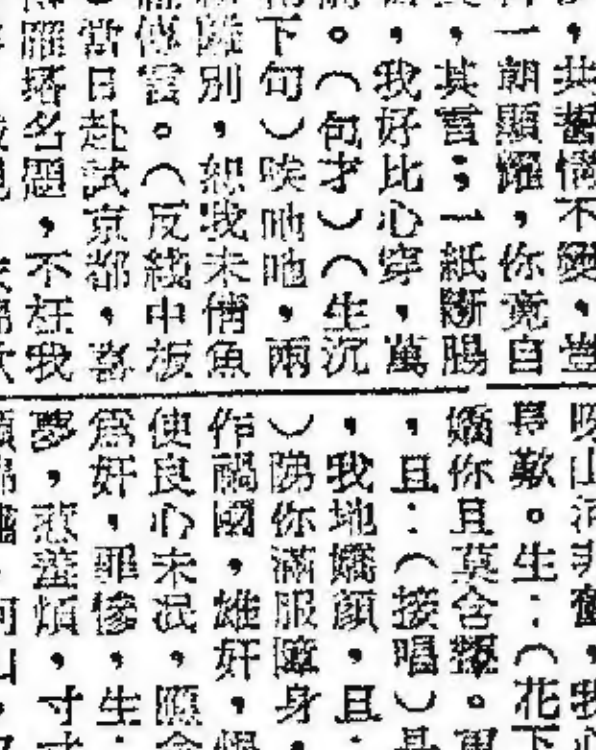 ，共誓情不變，豈
一朝顯耀，你竟自
，其言；一紙斷腸
，我好比心穿，萬
。（句才）（生沉
下句）唉吔吔，兩
別，想我未借魚
傳書。（反線中板
當日赴試京都，喜
雁塔名題，不枉我
山河非舊，我心
尋歡。生：（花下
嬌你且莫含顰。
，且：（接唱）。
，我地嬌顏，且：
）睇你滿服隨身，
作禍國，雄奸，
使良心未泯，
為奸，罪慘，生：
夢，煩，寸寸